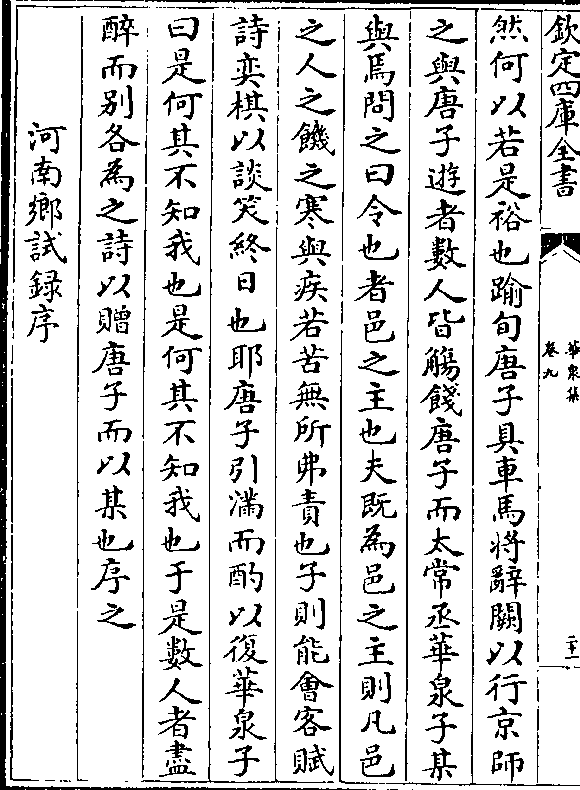 欽定四庫全書
華泉集
卷九
二十一
然何以若是裕也踰旬唐子具車馬將辭闕以行京師
之與唐子遊者數人皆觴餞唐子而太常丞華泉子某
與焉問之曰令也者邑之主也夫既為邑之主則凡邑
之人之饑之寒與疾若苦無所弗責也子則能㑹客賦
詩奕棋以談笑終日也耶唐子引滿而酌以復華泉子
曰是何其不知我也是何其不知我也于是數人者盡
醉而别各為之詩以贈唐子而以某也序之
河南鄉試録序